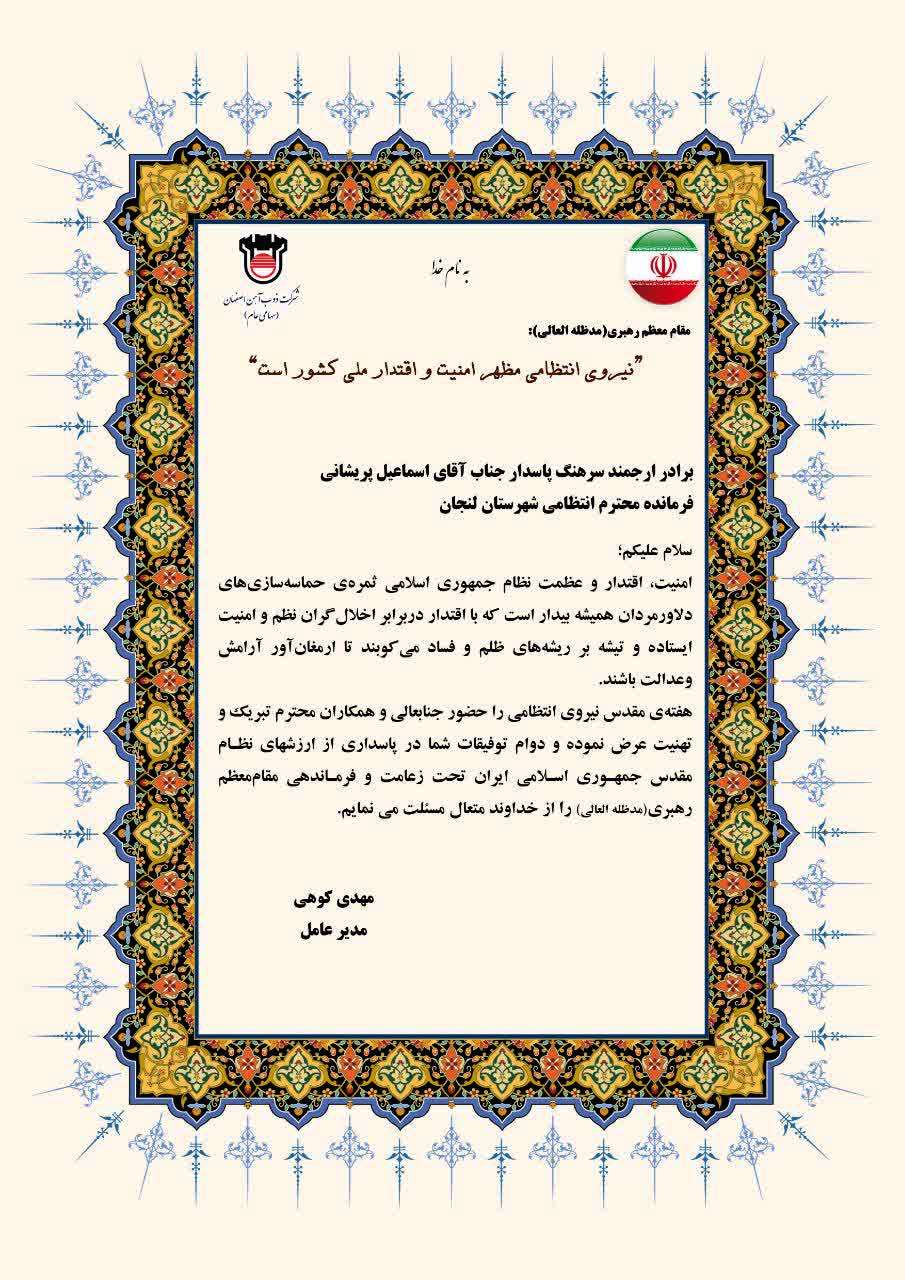 به نام خدا
شرکت ذوب آهن اصفهان
(سهامی عام)
مقام معظم رهبری(مدظله العالی):
"نیروی انتظامی مظهر امنیت و اقتدار ملی کشور است"
برادر ارجمند سرهنگ پاسدار جناب آقای اسماعیل پریشانی
فرمانده محترم انتظامی شهرستان لنجان
سلام علیکم؛
امنیت، اقتدار و عظمت نظام جمهوری اسلامی ثمره‌ی حماسه‌سازی‌های
دلاورمردان همیشه بیدار است که با اقتدار دربرابر اخلال‌گران نظم و امنیت
ایستاده و تیشه بر ریشه‌های ظلم و فساد می‌کوبند تا ارمغان‌آور آرامش
وعدالت باشند.
هفته‌ی مقدس نیروی انتظامی را حضور جنابعالی و همکاران محترم تبریک و
تهنیت عرض نموده و دوام توفیقات شما در پاسداری از ارزشهای نظـام
مقدس جمهـوری اسـلامی ایران تحت زعامت و فرمـاندهی مقام‌معظم
رهبری(مدظله العالی) را از خداوند متعال مسئلت می نمایم.
مهدی کوهی
مدیر عامل